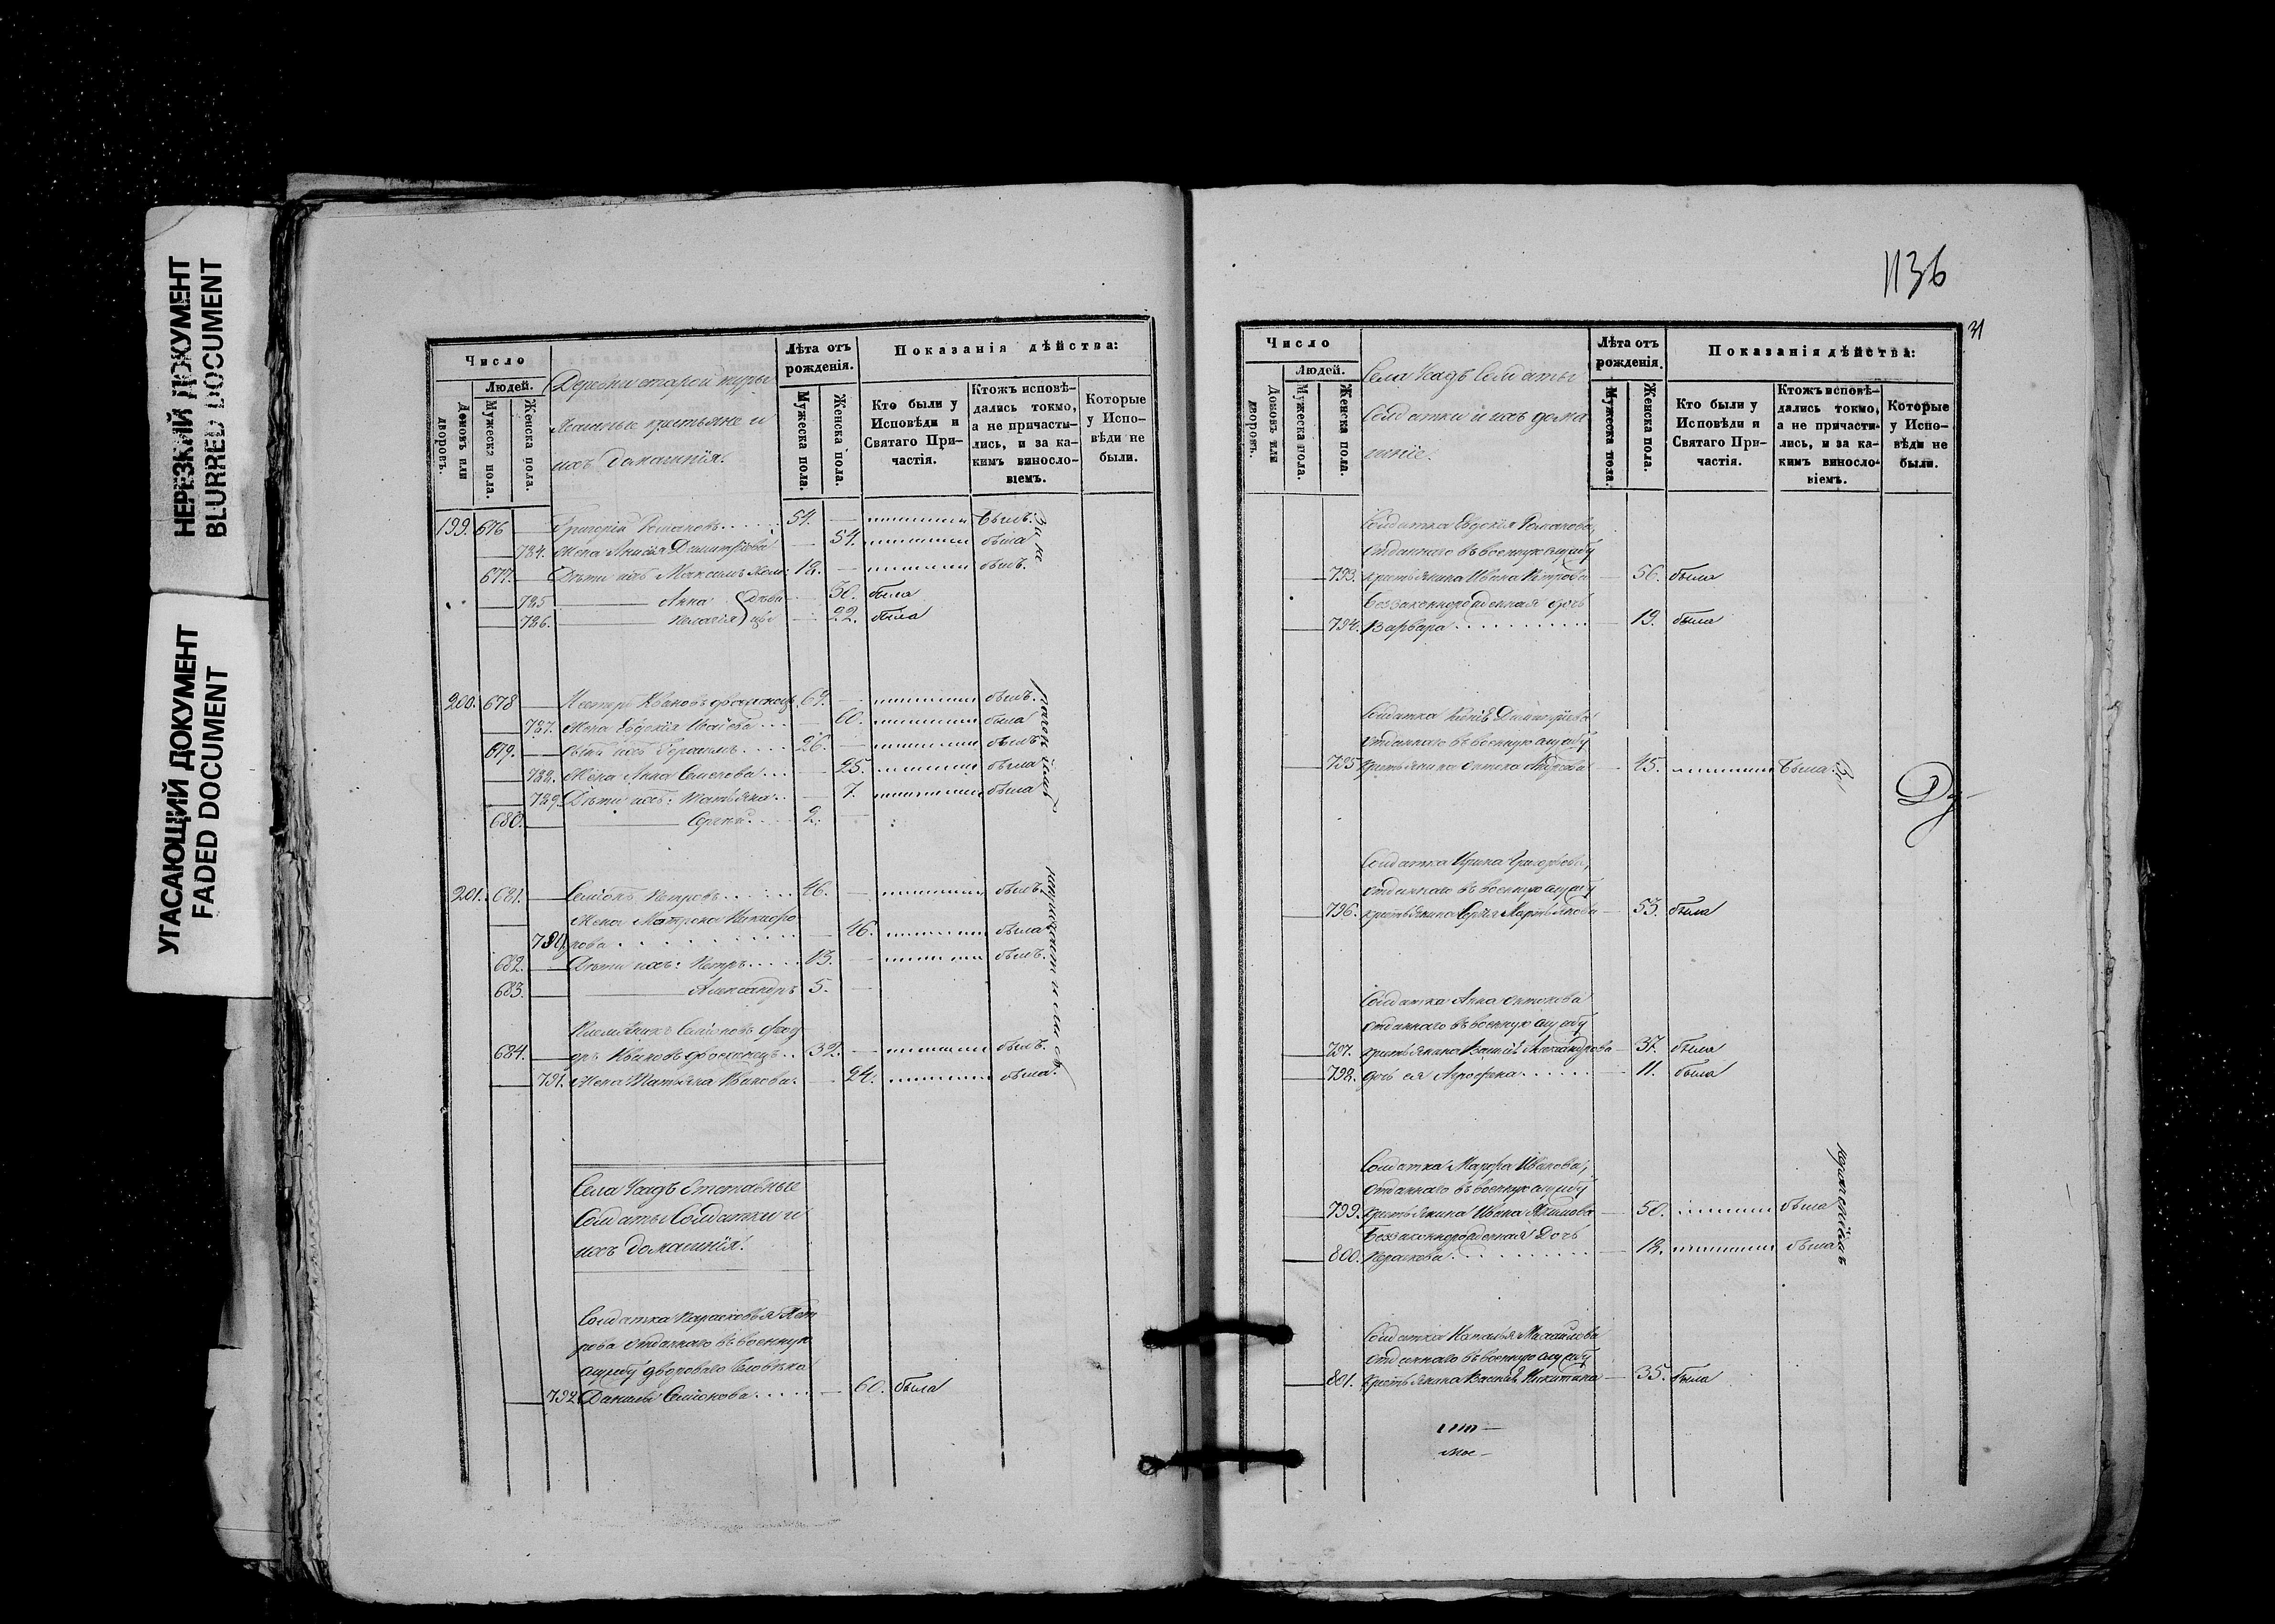 НЕРЕЗКИЙ ДОКУМЕНТ
BLURRED DOCUMENT
УГАСАЮЩИЙ ДОКУМЕНТ
FADED DOCUMENT
Число
Людей.
Домовъ или дворовъ.
Мужеска пола.
Женска пола.
Деревни старой
крестьяне и
ихъ домашнія.
Лѣта отъ рожденія.
Мужеска пола.
Женска пола.
Показанія дѣйства:
Кто были у Исповѣди и Святаго Причастія.
Ктожъ исповѣ-
дались токмо,
а не причасти-
лись, и за ка-
кимъ виносло-
віемъ.
Которые
у Испо-
вѣди не
были.
199. 676 Григорій Романовъ 54. былъ.
784. Жена Анисія Димитріева 54. была
677. Дѣти ихъ Максимъ 18. былъ.
785 Анна 30. была
786. Пелагія 22. была
200. 678 Нестеръ Ивановъ 62. былъ.
787. Жена Евдокія 60. была
679. Сынъ ихъ Герасимъ 26. былъ
788. Жена Анна Семенова 25. была
789. Дѣти ихъ: Татьяна 7. была
680. Сергій 2.
201. 681. Семіонъ Петровъ 46. былъ
Жена Матрона Никифо
790 рова 46. была
682. Дѣти ихъ: Петръ 13. былъ.
683. Александръ 5.
Племянникъ Семіоновъ Ѳеод
684. ръ Ивановъ 32. былъ.
791. Жена Татьяна Иванова 24. была.
Села Усадъ Отставные
Солдаты Солдатки и
ихъ домашнія.
Солдатка Парасковья Пет
рова отданнаго въ военную
службу двороваго человѣка
792 Данилы Семіонова 60. была
1136
31
Число
Людей.
Домовъ или дворовъ.
Мужеска пола.
Женска пола.
Села Усадъ Солдаты
Солдатки и ихъ дома
шніе.
Лѣта отъ рожденія.
Мужеска пола.
Женска пола.
Показанія дѣйства:
Кто были у Исповѣди и Святаго Причастія.
Ктожъ исповѣ-
дались токмо,
а не причасти-
лись, и за ка-
кимъ виносло-
віемъ.
Которые
у Испо-
вѣди не
были.
Солдатка Евдокія Романова,
отданнаго въ военную службу
793. крестьянина Ивана Петрова 56. была
Беззаконнорожденная дочь
794. Варвара 19. была
Солдатка Димитріева
отданнаго въ военную службу
795 крестьянина Антона Андреева 45. была
Солдатка Ирина Григорьева,
отданнаго въ военную службу
796. крестьянина Сергѣя Мартьянова 53. была
Солдатка Анна Антонова
отданнаго въ военную службу
797. крестьянина Василья Александрова 37. была
798. дочь ея Агрофена 11. была
Солдатка Марфа Иванова,
отданнаго въ военную службу
799. крестьянина Ивана Акимова 50. была
Беззаконнорожденная Дочь
800. Парасковья 18. была
Солдатка Наталья Михайлова
отданнаго въ военную службу
801. крестьянина Василья Никитина 35. была